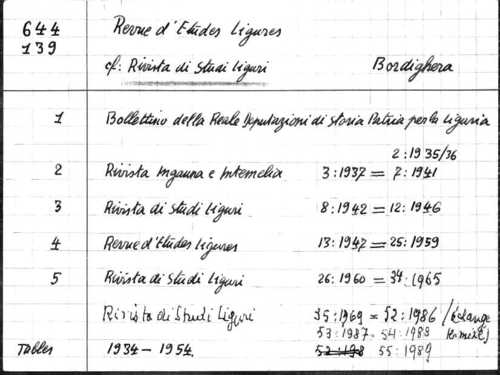 644 Revue d'Etudes Ligures
139
cf: Rivista di Studi Liguri Bordighera
1 Bollettino della Reale Deputazioni di Storia Patria per la Liguria
2:1935/36
2 Rivista Ingauna e Intemelia 3:1937 = 7:1941
3 Rivista di Studi Liguri 8:1942 = 12:1946
4 Revue d'Etudes Ligures 13:1947 = 25:1959
5 Rivista di Studi Liguri 26:1960 = 34:1965
Rivista di Studi Liguri 35:1969 = 52:1986 / échange
53:1987 - 54:1988
Tables 1934 - 1954 52:198 55:1989